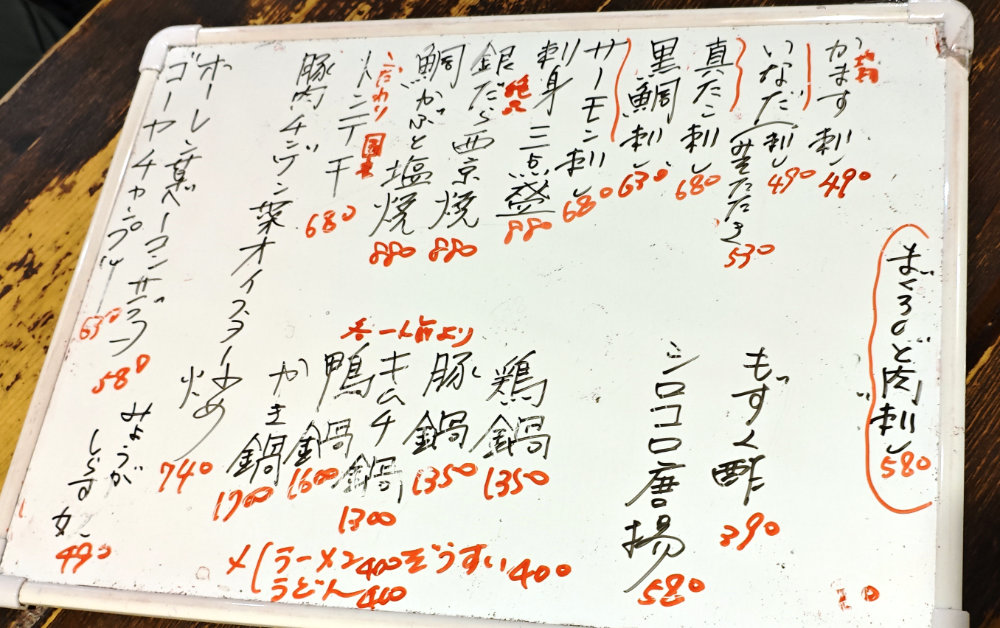 まぐろのど肉刺し 580
かます刺し 490
いなだ(刺し 490
たたき 530
真たこ刺し 680
黒鯛刺し 630
サーモン刺し 680
刺身三点盛 880
銀だら西京焼 880
鯛かぶと塩焼 880
こだわり
680
豚肉チンゲン菜オイスター炒め 740
ホーレン草ベーコンサラダ 580
ゴーヤチャンプルー 630
もずく酢 390
シロコロ唐揚 580
各一人前より
鶏鍋 1350
豚鍋 1350
キムチ鍋 1300
鴨鍋 1600
かき鍋 1700
〆(ラーメン400 ぞうすい400
うどん400
みょうが
しらす
490